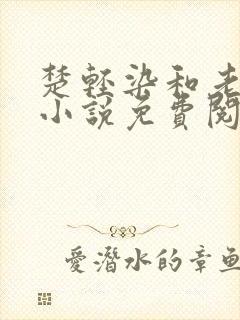 楚轻染和老
小說免費閱
愛潛水的章魚